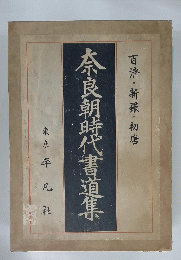 百済・新羅・初唐
奈良朝時代書道集
東京 平凡社